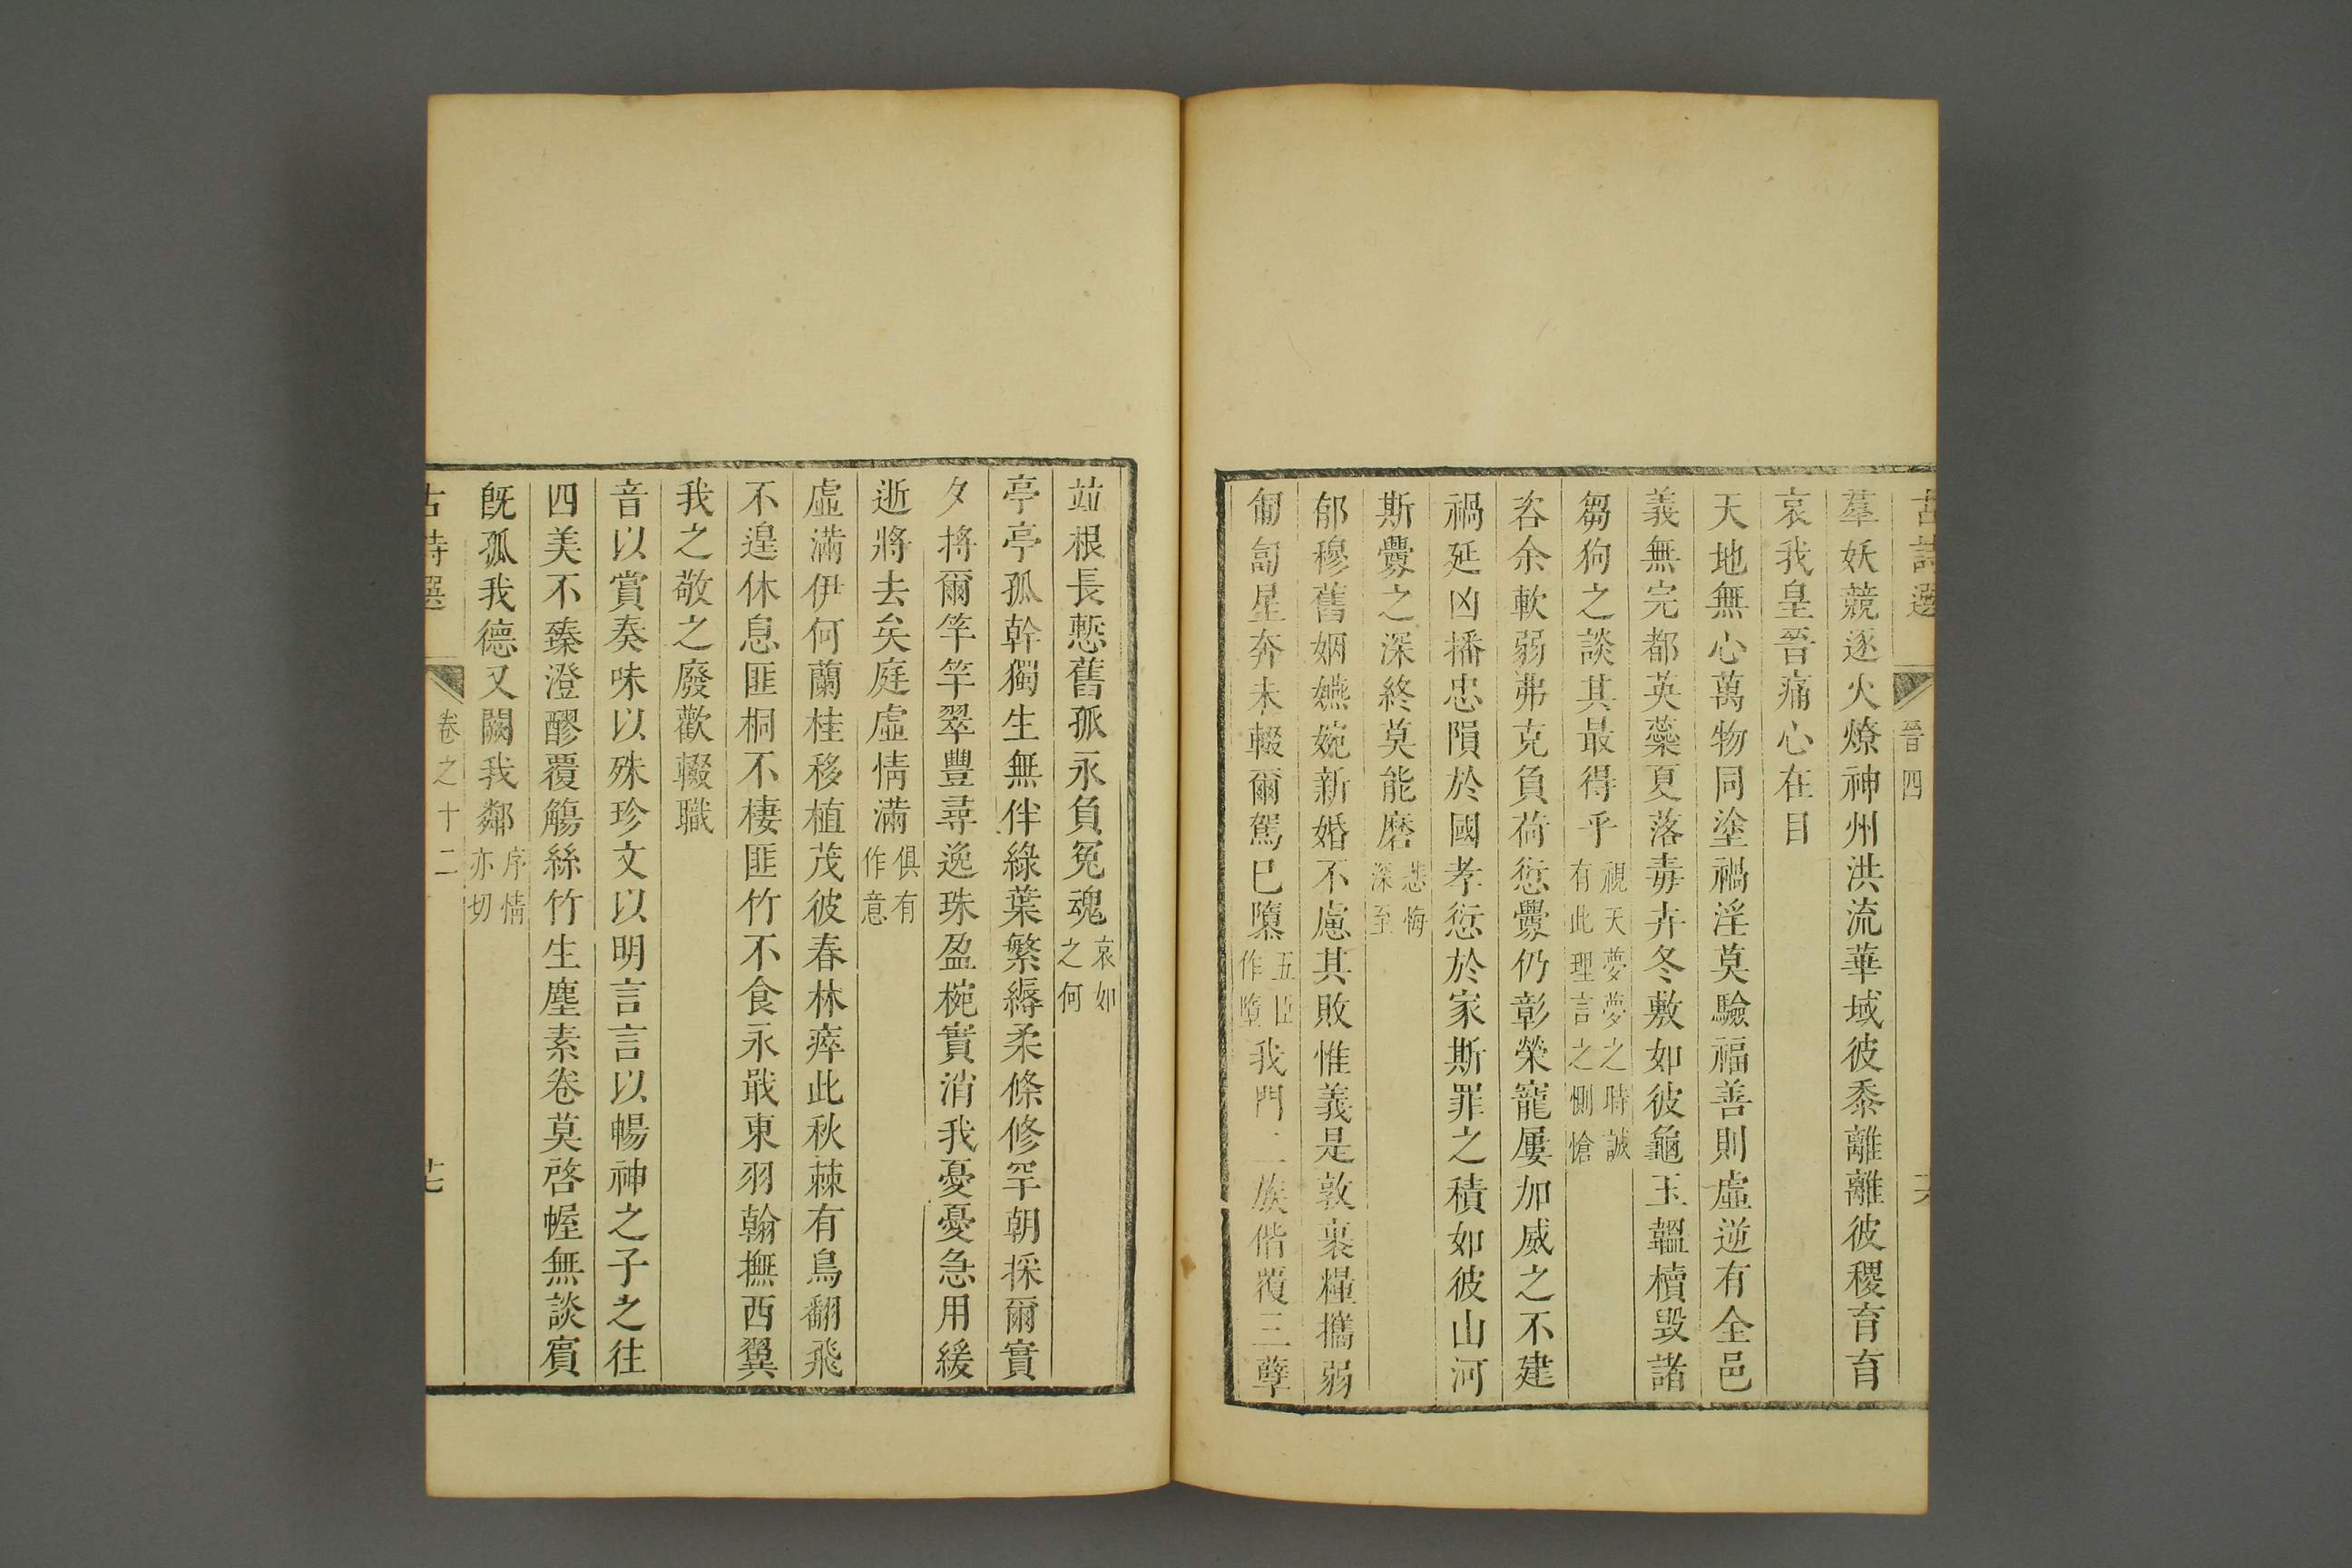 古詩選 晉四
羣妖競逐火燎神州洪流華域彼黍離離彼稷育育
哀我皇晉痛心在目
天地無心萬物同塗禍淫莫驗福善則虛逆有全邑
義無完都英蘂夏落毒卉冬敷如彼龜玉韞櫝毀諸
芻狗之談其最得乎視天夢夢之時誠有此理言之惻愴
咨余軟弱弗克負荷愆釁仍彰榮寵屢加威之不建
禍延凶播忠隕於國孝愆於家斯罪之積如彼山河
斯釁之深終莫能磨悲悔深至
郁穆舊姻嬿婉新婚不慮其敗惟義是敦裹糧攜弱
匍匐星奔未輟爾駕已隳五臣作墮我門二族偕覆三孽
竝根長慙舊孤永負冤魂哀如之何
亭亭孤幹獨生無伴綠葉繁縟柔條修罕朝採爾實
夕捋爾竿竿翠豐尋逸珠盈椀實消我憂憂急用緩
逝將去矣庭虛情滿俱有作意
虛滿伊何蘭桂移植茂彼春林瘁此秋棘有鳥翻飛
不遑休息匪桐不棲匪竹不食永戢東羽翰撫西翼
我之敬之廢歡輟職
音以賞奏味以殊珍文以明言言以暢神之子之往
四美不臻澄醪覆觴絲竹生塵素卷莫啓幄無談賓
旣孤我德又闕我鄰序情亦切
古詩選 卷之十二 十七